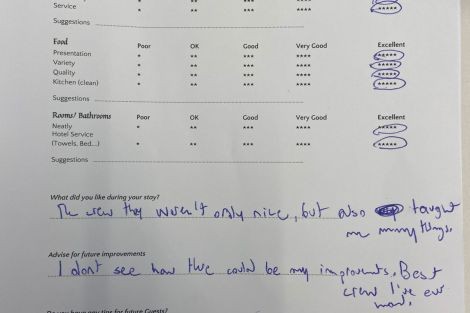 Service * ** *** **** *****
Suggestions
Food Poor OK Good Very Good Excellent
Presentation * ** *** **** *****
Variety * ** *** **** *****
Quality * ** *** **** *****
Kitchen (clean) * ** *** **** *****
Suggestions
Rooms/ Bathrooms Poor OK Good Very Good Excellent
Neatly * ** *** **** *****
Hotel Service
(Towels, Bed....) * ** *** **** *****
Suggestions
What did you like during your stay?
The crew they weren't only nice, but also taught
me many things.
Advise for future improvements
I dont see how the could be any improvents. Best
crew I've ever
Do you have any tips for future Guests?